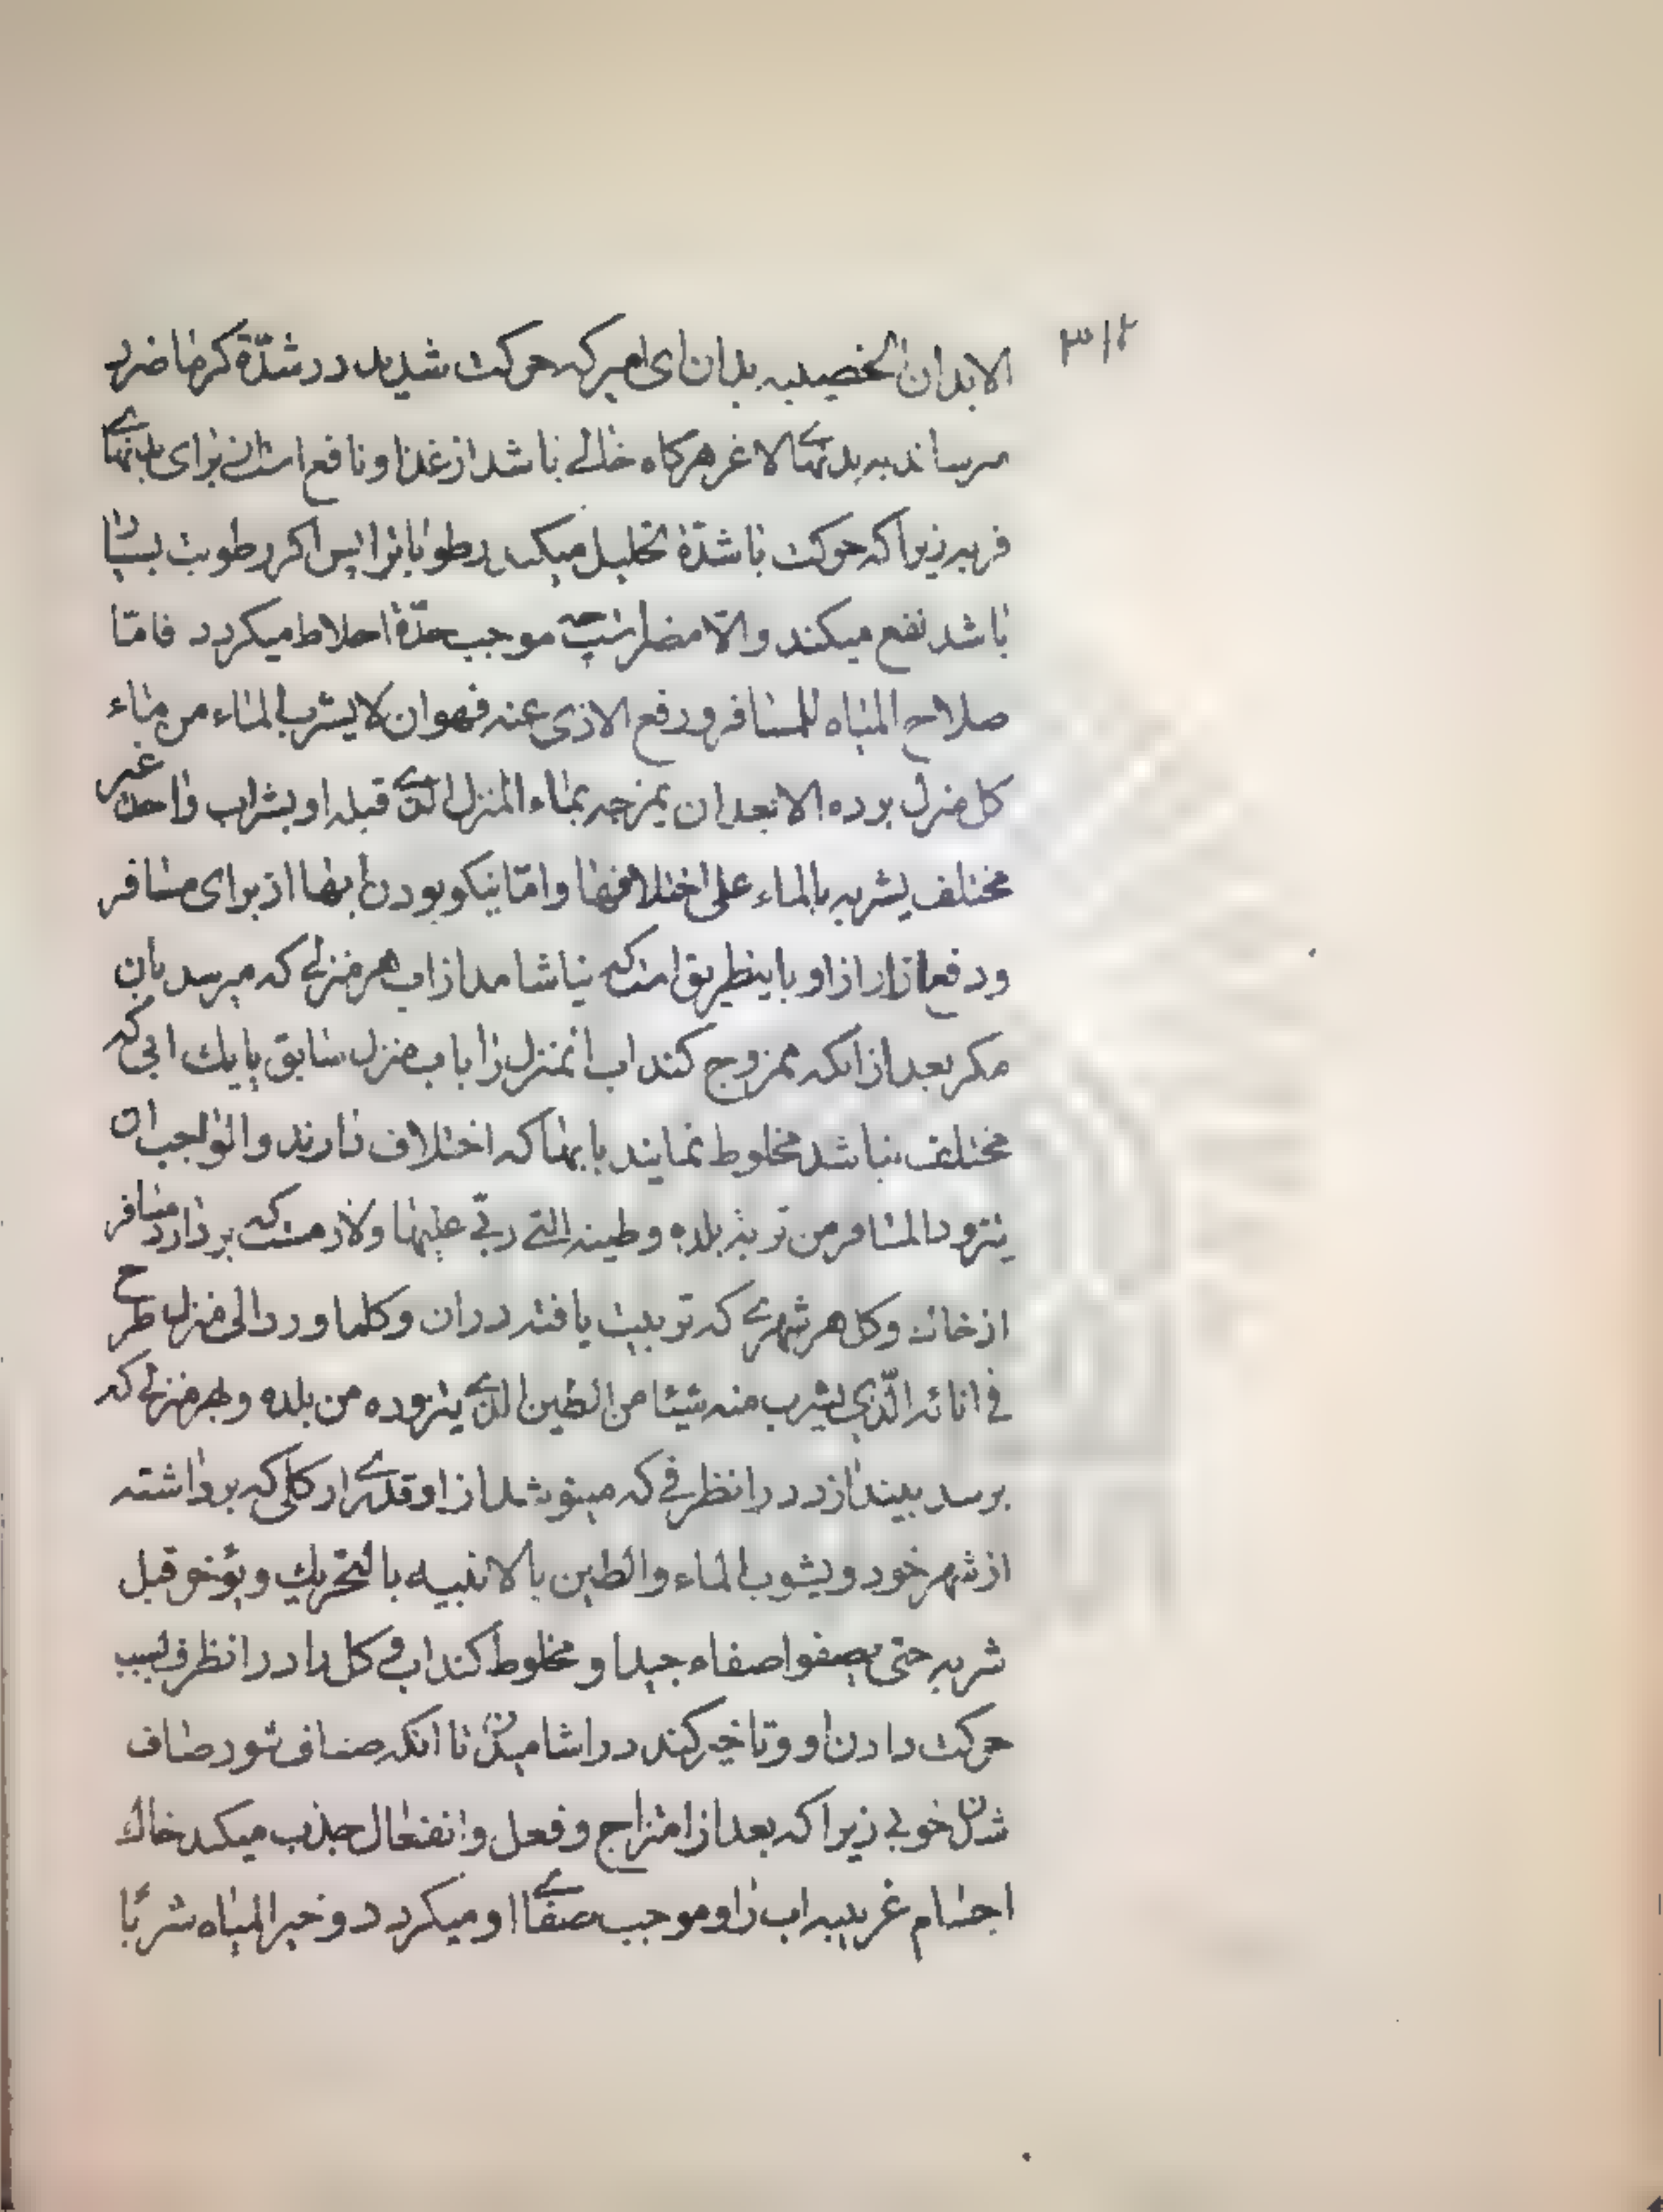 ۳۱۲
الابدان الخصیبه بدان ای امیر که حرکت شدید در شدّة کرما ضرر
میرساند به بدنهای لاغر هرکاه خالی باشد از غذا و نافع است از برای بدنهای
فربه زیرا که حرکت با شدّة تحلیل میکند رطوبا ترا پس اکر رطوبت بسیار
باشد نفع میکند والّا مضر است چه موجب حدّة اخلاط میکردد فامّا
صلاح المیاه للمسافر ودفع الاذی عنه فهو ان لا یشرب الماء من ماء
کل منزل یرده الا بعد ان یمزجه بماء المنزل الذی قبله او بشراب واحد غیر
مختلف یشربه بالماء علی اختلافها وامّا نیکو بودن ابها از برای مسافر
ودفع ازار از او باینطریق است که نیاشامد از اب هر منزلی که میرسد بان
مکر بعد از انکه ممزوج کند اب انمنزل را با اب منزل سابق یا یك ابی که
مختلف نباشد مخلوط نمایند بابها که اختلاف دارند والواجب ان
یتزود المسافر من تربة بلده وطینه التی ربّی علیها ولازمست که بردارد مسافر
از خاك وکل هر شهری که تربیت یافته دران وکلما ورد الی منزل طرح
فی انائه الّذی یشرب منه شیئا من الطین الذی یتزوده من بلده وبهر منزلی که
برسد بیندازد در انظرفی که مینوشد از او قدری از کلی که برداشته
از شهر خود ویشوب الماء والطین بالانیه بالتحریك ویؤخر قبل
شربه حتی یصفوا صفاء جیدا و مخلوط کند اب وکل را در انظرف بسبب
حرکت دادن او وتاخیر کند در اشامیدن تا انکه صاف شود صاف
شدن خوبی زیرا که بعد از امتزاج وفعل وانفعال جذب میکند خاك
اجسام غریبه اب را و موجب صفای او میکردد وخیر المیاه شربًا